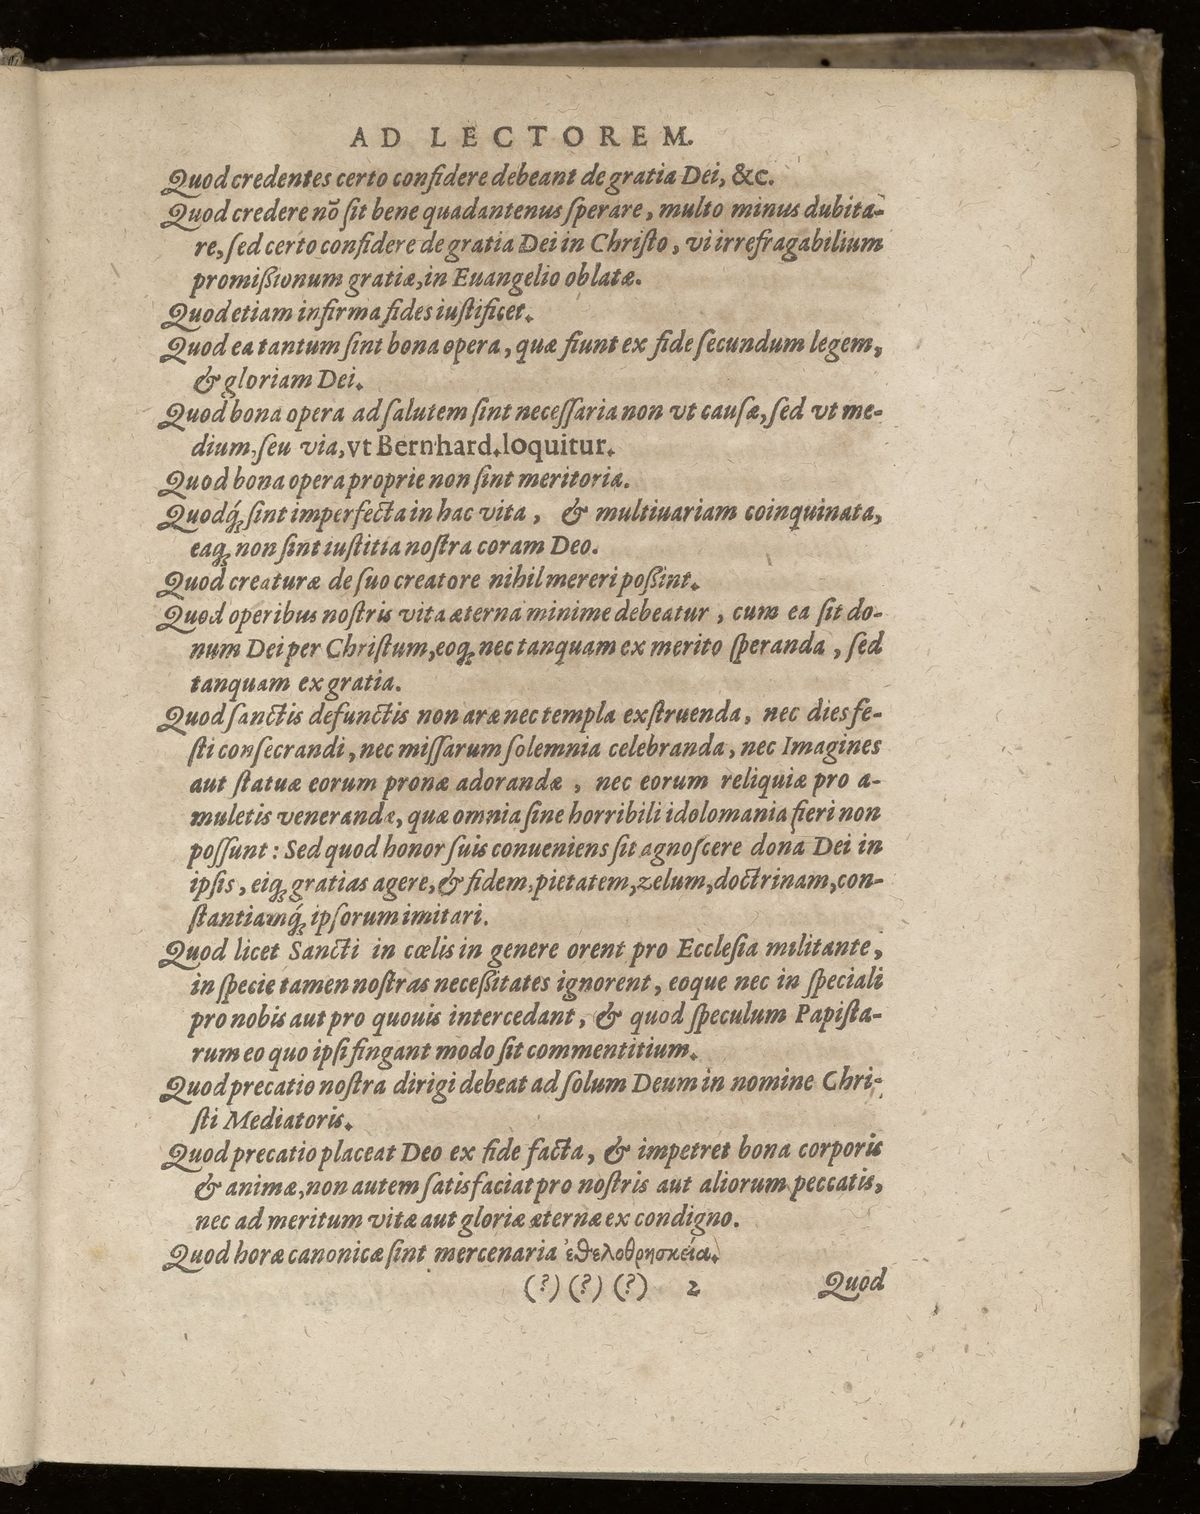 AD LECTOREM.
Quod credentes certo confidere debeant de gratia Dei, &c.
Quod credere nõ ſit bene quadantenus ſperare, multo minus dubita-
re, ſed certo confidere de gratia Dei in Chriſto, vi irrefragabilium
promißionum gratiæ, in Euangelio oblatæ.
Quod etiam infirma fides iuſtificet.
Quod ea tantum ſint bona opera, quæ fiunt ex fide ſecundum legem,
& gloriam Dei.
Quod bona opera ad ſalutem ſint neceſſaria non vt cauſæ, ſed vt me-
dium, ſeu via, vt Bernhard. loquitur.
Quod bona opera proprie non ſint meritoria.
Quodq́; ſint imperfecta in hac vita, & multiuariam coinquinata,
eaq; non ſint iuſtitia noſtra coram Deo.
Quod creaturæ de ſuo creatore nihil mereri poßint.
Quod operibus noſtris vita æterna minime debeatur, cum ea ſit do-
num Dei per Chriſtum, eoq; nec tanquam ex merito ſperanda, ſed
tanquam ex gratia.
Quod ſanctis defunctis non aræ nec templa exſtruenda, nec dies fe-
ſti conſecrandi, nec miſſarum ſolemnia celebranda, nec Imagines
aut ſtatuæ eorum pronæ adorandæ, nec eorum reliquiæ pro a-
muletis venerandæ, quæ omnia ſine horribili idolomania fieri non
poſſunt: Sed quod honor ſuis conueniens ſit agnoſcere dona Dei in
ipſis, eiq; gratias agere, & fidem, pietatem, zelum, doctrinam, con-
ſtantiamq́; ipſorum imitari.
Quod licet Sancti in cœlis in genere orent pro Eccleſia militante,
in ſpecie tamen noſtras neceßitates ignorent, eoque nec in ſpeciali
pro nobis aut pro quouis intercedant, & quod ſpeculum Papiſta-
rum eo quo ipſi fingant modo ſit commentitium.
Quod precatio noſtra dirigi debeat ad ſolum Deum in nomine Chri-
ſti Mediatoris.
Quod precatio placeat Deo ex fide facta, & impetret bona corporis
& animæ, non autem ſatisfaciat pro noſtris aut aliorum peccatis,
nec ad meritum vitæ aut gloriæ æternæ ex condigno.
Quod horæ canonicæ ſint mercenaria ἐθελοθρησκεία.
(?) (?) (?) 2 Quod